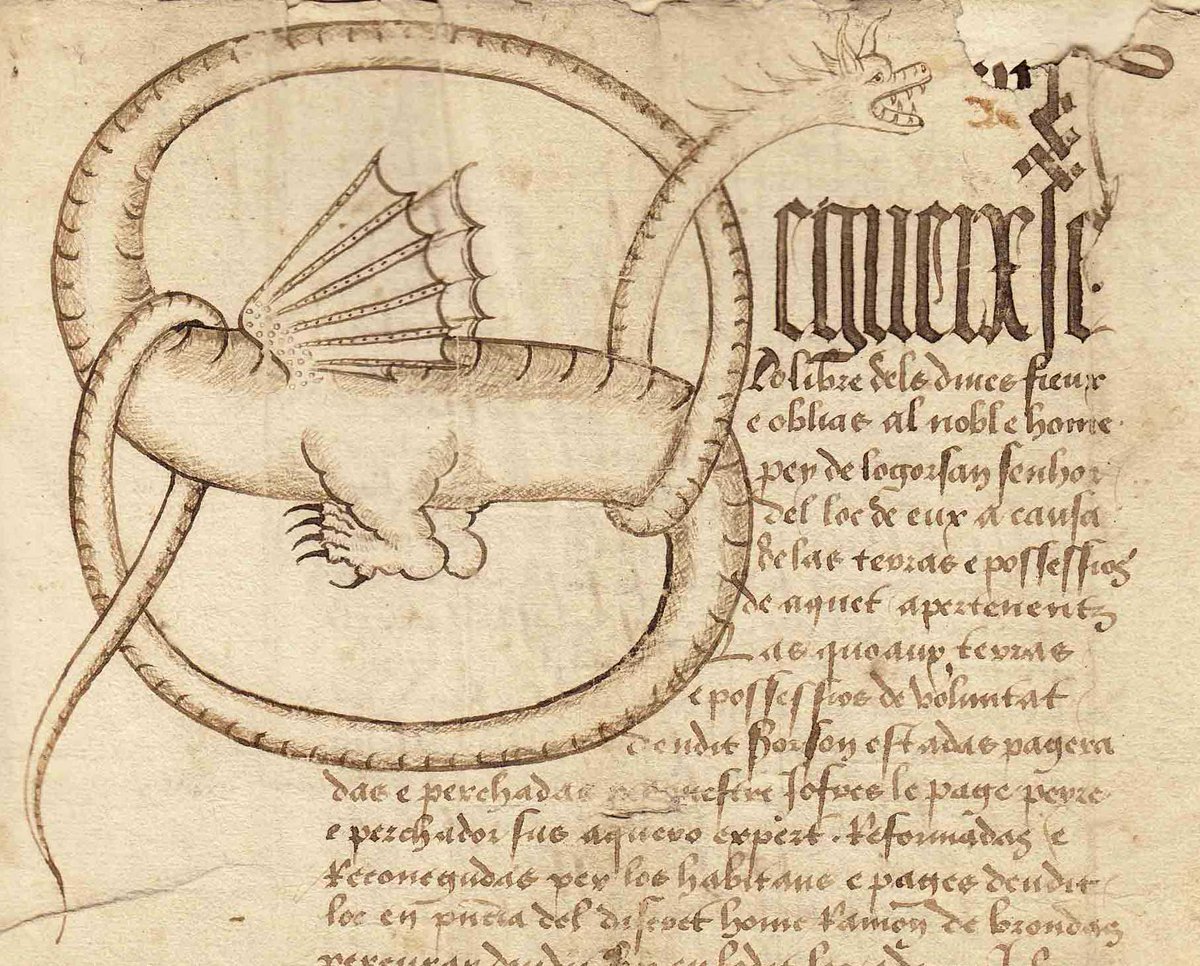 Segueixse
Lo libre dels dines fieux
e oblias al noble home
pey de logorsan senhor
del loc de eux a causa
de las terras e possessios
de aquet apertenentz
Las quoaux terras
e possessios de voluntat
deudit Sor son estadas pagera
das e perchadas mestre Jofres le page peyre
e perchador sus aquero expert. Reformadas e
Reconegudas per los habitans e pages deudit
loc en pncia del discret home Ramon de brondas